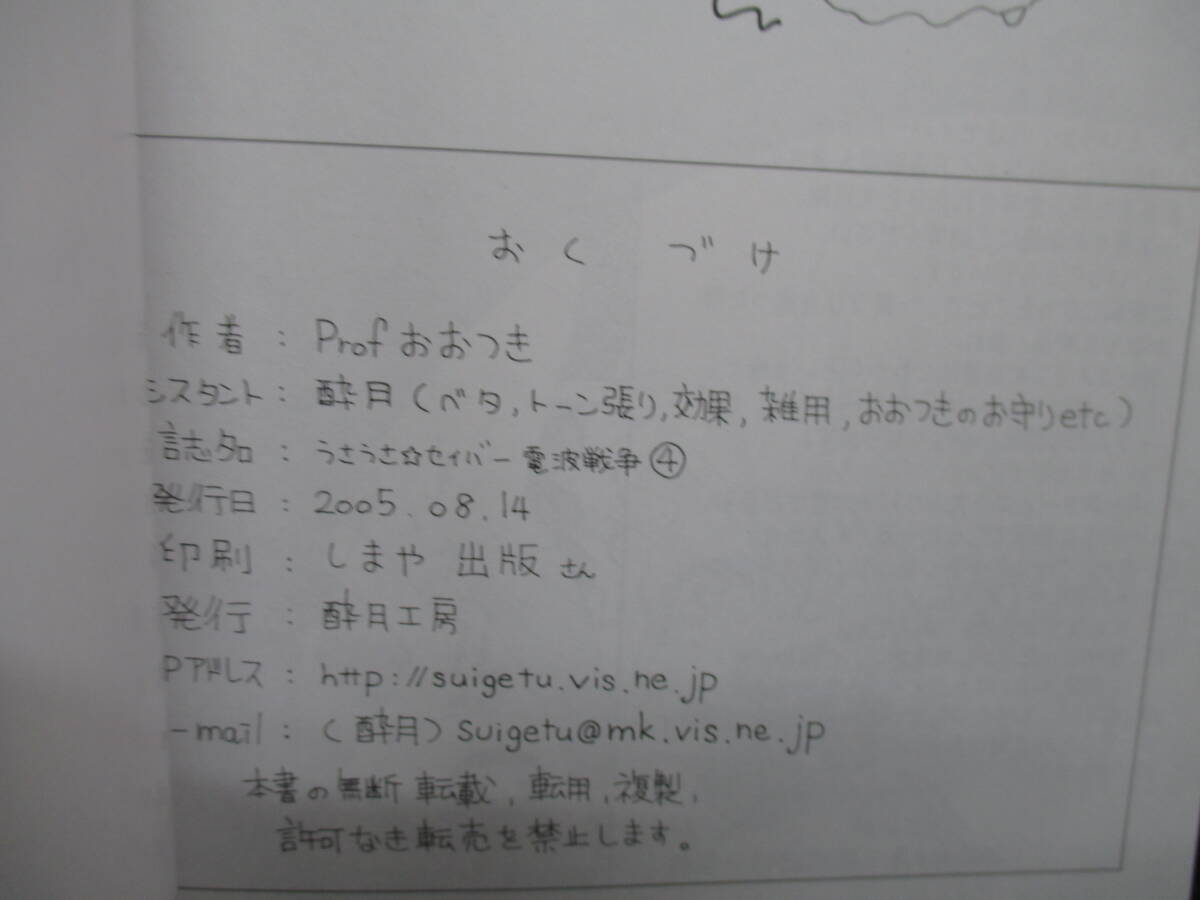 おくづけ
作者：Prof おおつき
シスタント：酔月（ベタ,トーン張り,効果,雑用,おおつきのお守りetc）
誌名：うさうさ☆セイバー電波戦争④
発行日：2005.08.14
印刷：しまや出版さん
発行：酔月工房
Pアドレス：http://suigetu.vis.ne.jp
-mail：（酔月）suigetu@mk.vis.ne.jp
本書の無断転載,転用,複製,
許可なき転売を禁止します。